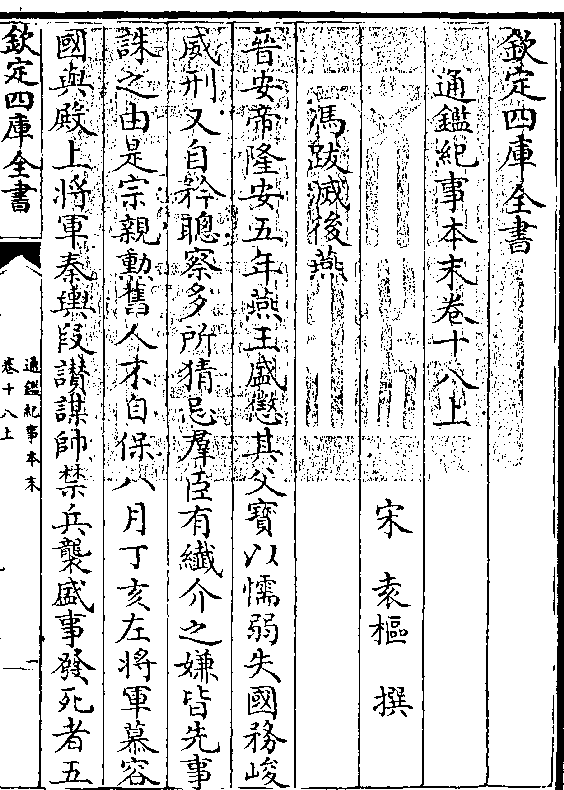 欽定四庫全書
通鑑紀事本末卷十八上
宋 袁樞 撰
馮跋滅後燕
晉安帝隆安五年燕王盛懲其父寶以懦弱失國務峻
威刑又自矜聰察多所猜忌羣臣有纖介之嫌皆先事
誅之由是宗親勲舊人不自保八月丁亥左將軍慕容
國與殿上將軍秦輿段讃謀帥禁兵襲盛事發死者五
欽定四庫全書
通鑑紀事本末
卷十八上
一